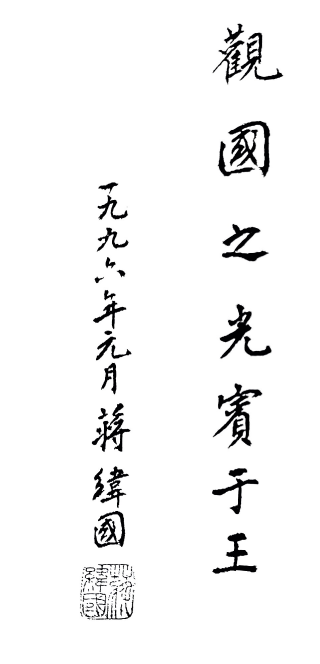 觀國之光賓于王
一九九六年元月蔣緯國
蔣緯國